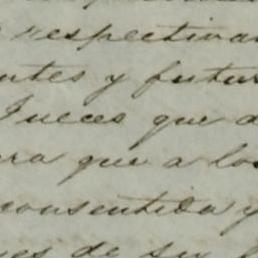 respectivam
ntes y futur
Jueces que d
ra que a los
consentida y
es de su